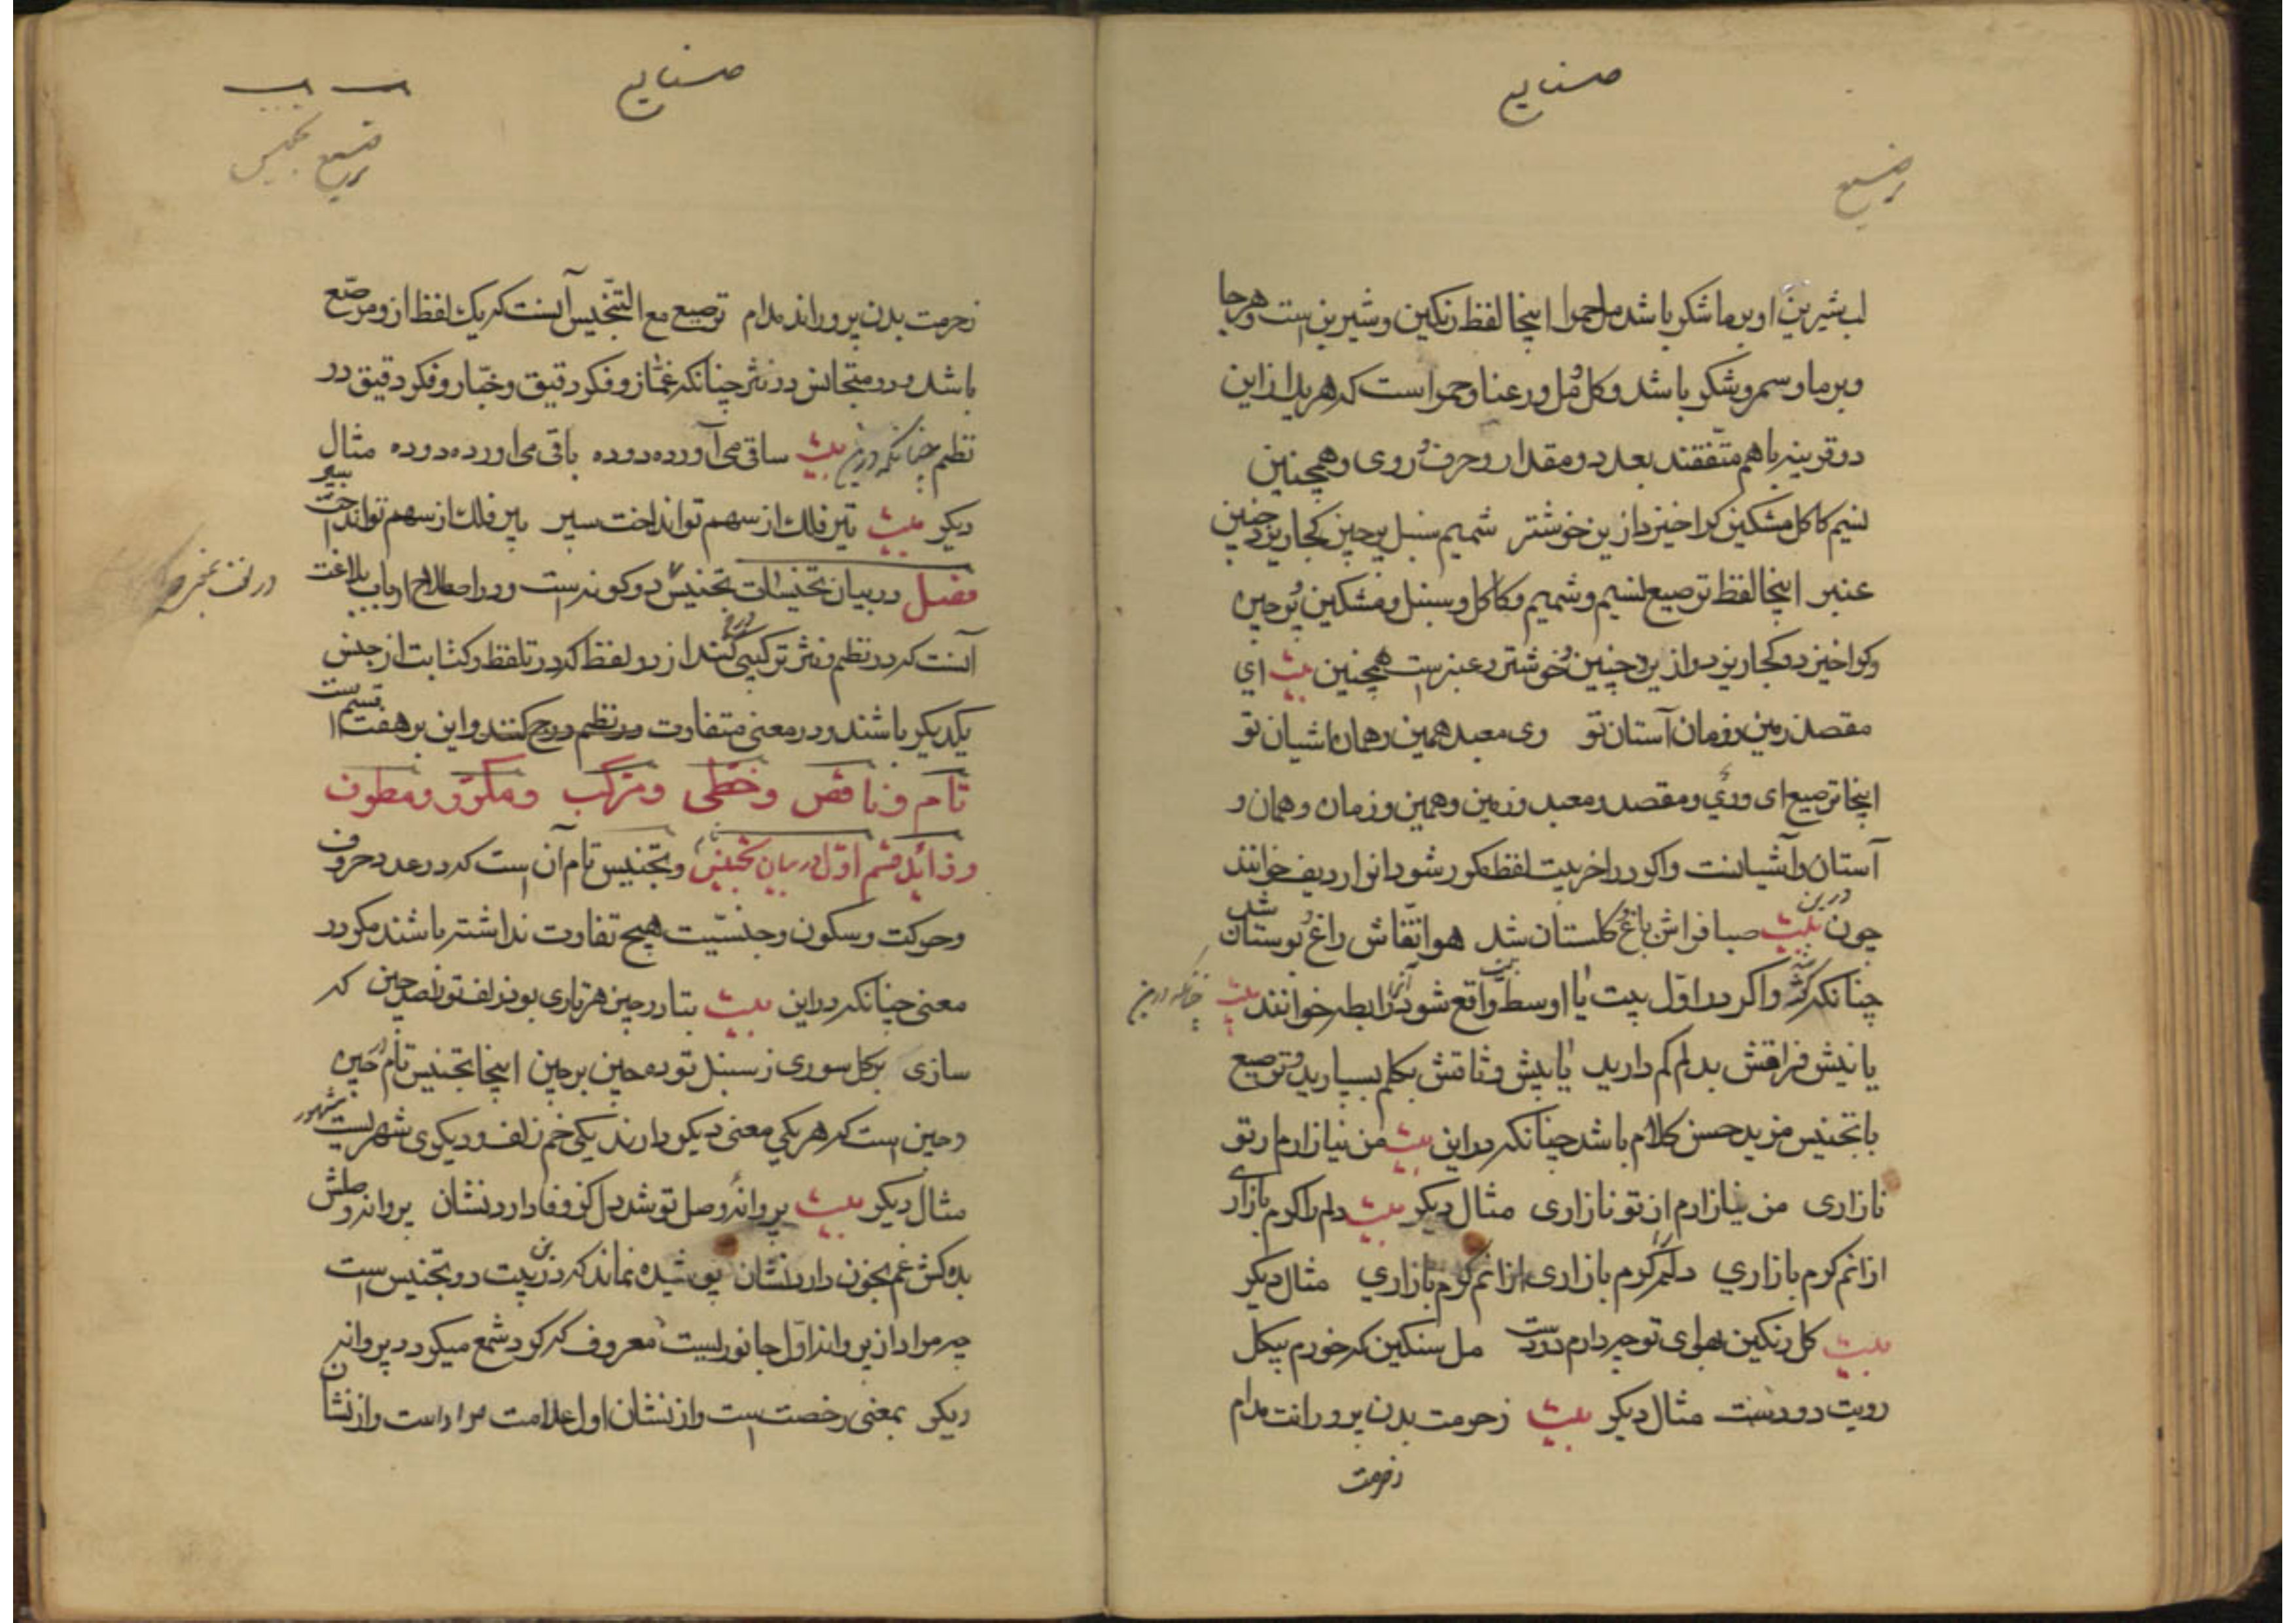 صنایع
ترصیع
لب شیرین او بر ما شکر باشد مل حمرا اینجا لفظ رنکین و شیرین است و هرجا
و بر ما و سمر و شکر باشد و کل و مل و رعنا و حمرا است که هر یک از این
دو قرینه با هم متّفقند بعدد و مقدار و حرف روی و همچنین
نسیم کاکل مشکین کرا خیزد ازین خوشتر شمیم سنبل پرچین کجا ریزد چنین
عنبر اینجا لفظ ترصیع نسیم و شمیم و کاکل و سنبل و مشکین و پرچین
و کرا خیزد و کجا ریزد و ازین و چنین و خوشتر و عنبر است همچنین بیت ای
مقصد زمین و زمان آستان تو وی معبد همین و همان اشیان تو
اینجا ترصیع ای و وی و مقصد و معبد و زمین و همین و زمان و همان و
آستان و آشیانست و اکر در اخر بیت لفظ مکرر شود انرا ردیف خوانند
چون درین بیت صبا فراش باغ کلستان شد هوا نقّاش راغ بوستان شد
چنانکه واکر در اوّل بیت یا اوسط واقع شود آنرا رابطه خوانند چنانکه درین بیت
یا نیش فراقش بدلم کم دارید یا پیش وثاقش بکلم بسپارید و ترصیع
با تجنیس مزید حسن کلام باشد چنانکه در این بیت من نیازارم ار تو
نازاری من نیازارم از تو نازاری مثال دیکر بیت دلم را کرم بازاری
ازانم کرم بازاری دلم را کرم بازاری ازانم کرم بازاری مثال دیکر
بیت کل رنکین بهوای تو چه دارم در دست مل سنکین که خورم بیکل
رویت دردست مثال دیکر بیت زحرمت بدن پرورانت مدام
زحرمت
صنایع
ترصیع تجنیس
زحرمت بدن پروراند مدام ترصیع مع التّجنیس آنست که یک لفظ ازو مرصّع
باشد و در متجانس در نثر چنانکه غمّاز و فکر دقیق و خبّاز و فکر دقیق در
نظم چنانکه درین بیت ساقی می آورده دوده باقی می اورده دوده مثال
دیکر بیت تیر فلک از سهم تو انداخت سپر پیر فلک از سهم تو انداخت سپر
فصل در بیان تجنیسات تجنیس دو کونه است و در اصطلاح ارباب بلاغت
آنست که در نظم و نثر ترکیبی کنند از دو لفظ که در تلفظ و کتابت از جنس
یکدیکر باشند و در معنی متفاوت در نظم درج کنند و این بر هفت قسم است
تام و ناقص و خطّی و مرکّب و مکرّر و مطرف
و زاید قسم اوّل در بیان تجنیس و تجنیس تام آن است که در عدد حروف
و حرکت و سکون و جنسیّت هیچ تفاوت نداشته باشند مکر در
معنی چنانکه در این بیت بتا در چین هر تاری بود زلف تو را صد چین که
سازی بر کل سوری ز سنبل توده چین بر چین اینجا تجنیس تام در چین
و چین است که هر یکی معنی دیکر دارند یکی خم زلف و دیکری شهریست مشهور
مثال دیکر بیت پروانهٔ وصل تو شد دل کز وفا دارد نشان پروانهٔ وصلش
بده کش غم بخون دارد نشان پوشیده نماند که درین بیت دو تجنیس است
چه مراد از پروانهٔ اوّل جانوریست معروف که کرد شمع میکردد پروانه
دیکر بمعنی رخصت است و از نشان اول علامت مراد است و از نشان